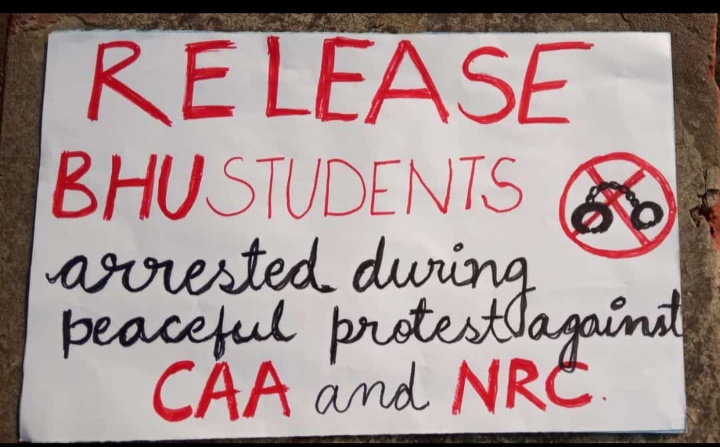 RELEASE
BHU STUDENTS
arrested during
peaceful protest against
CAA and NRC.